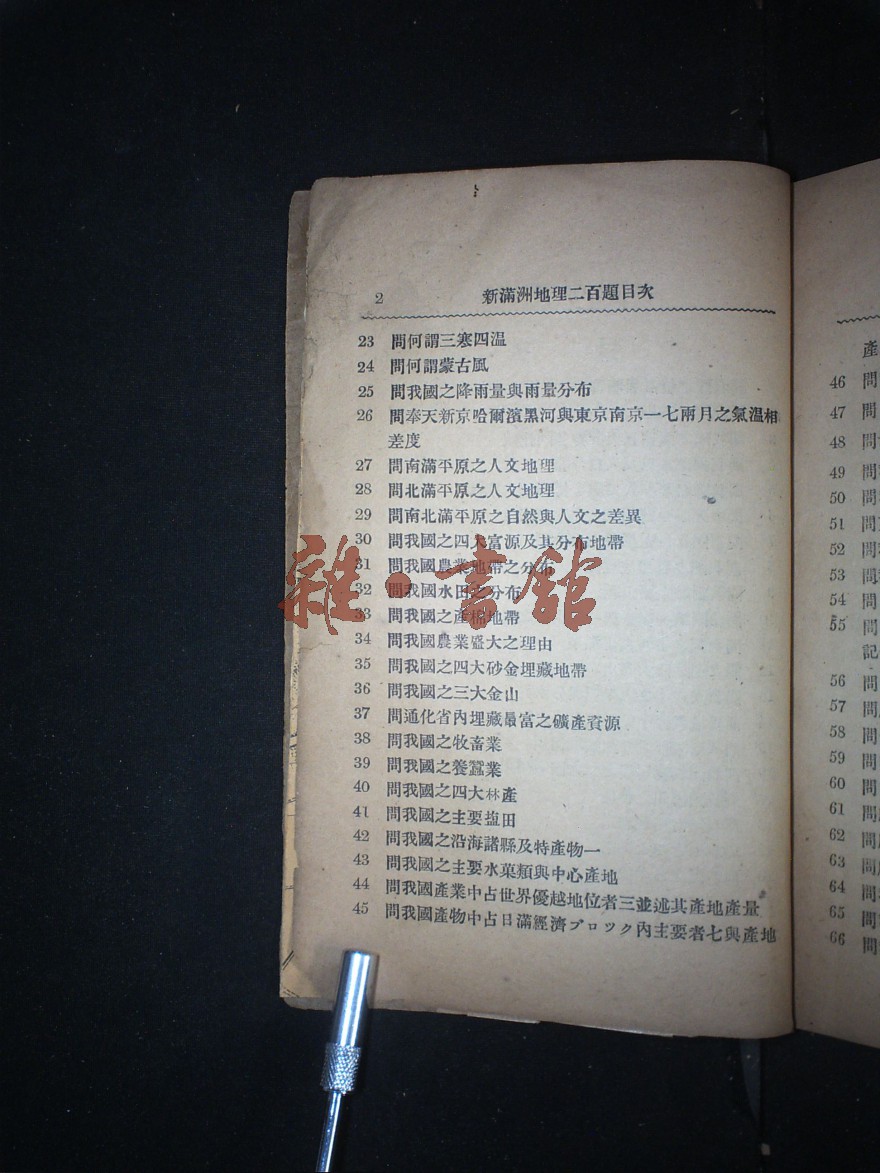 2 新滿洲地理二百題目次
23 問何謂三寒四溫
24 問何謂蒙古風
25 問我國之降雨量與雨量分布
26 問奉天新京哈爾濱黑河與東京南京一七兩月之氣溫相
差度
27 問南滿平原之人文地理
28 問北滿平原之人文地理
29 問南北滿平原之自然與人文之差異
30 問我國之四大富源及其分布地帶
31 問我國農業地帶之分布
32 問我國水田之分布
33 問我國之產棉地帶
34 問我國農業盛大之理由
35 問我國之四大砂金埋藏地帶
36 問我國之三大金山
37 問通化省內埋藏最富之礦產資源
38 問我國之牧畜業
39 問我國之養蠶業
40 問我國之四大林產
41 問我國之主要塩田
42 問我國之沿海諸縣及特產物一
43 問我國之主要水菓類與中心產地
44 問我國產業中占世界優越地位者三並述其產地產量
45 問我國產物中占日滿經濟ブロツク內主要者七與產地
雜·書館
產
46 問
47 問
48 問
49 問
50 問
51 問
52 問
53 問
54 問
55 問
記
56 問
57 問
58 問
59 問
60 問
61 問
62 問
63 問
64 問
65 問
66 問